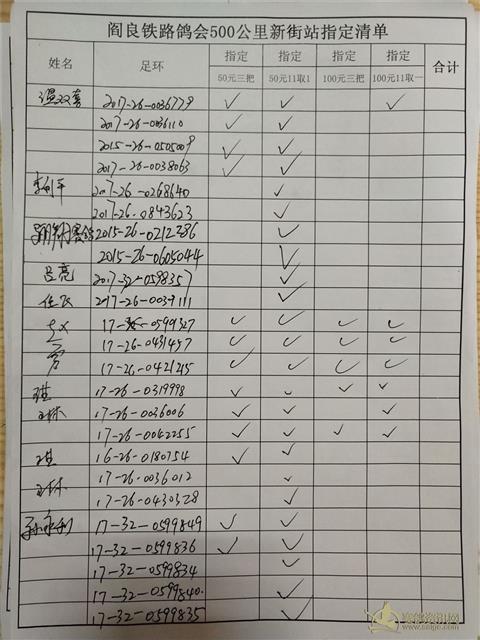 阎良铁路鸽会500公里新街站指定清单
姓名 足环 指定 指定 指定 指定 合计
50元三把 50元11取1 100元三把 100元11取一
温双喜 2017-26-0036778 ✓ ✓ ✓
2017-26-0036110 ✓ ✓
2015-26-0505009 ✓ ✓
2017-26-0038063 ✓ ✓
2017-26-0268640 ✓
2017-26-0843623 ✓
2015-26-0212386 ✓
2015-26-0605044 ✓
吕亮 2017-32-0598357 ✓
任飞 2017-26-0039111 ✓
0599327 ✓ ✓ ✓ ✓
17-26-0431457 ✓ ✓ ✓ ✓
17-26-0421215 ✓ ✓ ✓ ✓
17-26-0319998 ✓ ✓ ✓ ✓
17-26-0036006 ✓ ✓ ✓
17-26-0042255 ✓ ✓ ✓ ✓
16-26-0180754 ✓ ✓
17-26-0036012 ✓
17-26-0430328 ✓
孙永利 17-32-0599849 ✓ ✓
17-32-0599836 ✓ ✓
17-32-0599834 ✓
17-32-0599840 ✓
17-32-0599835 ✓